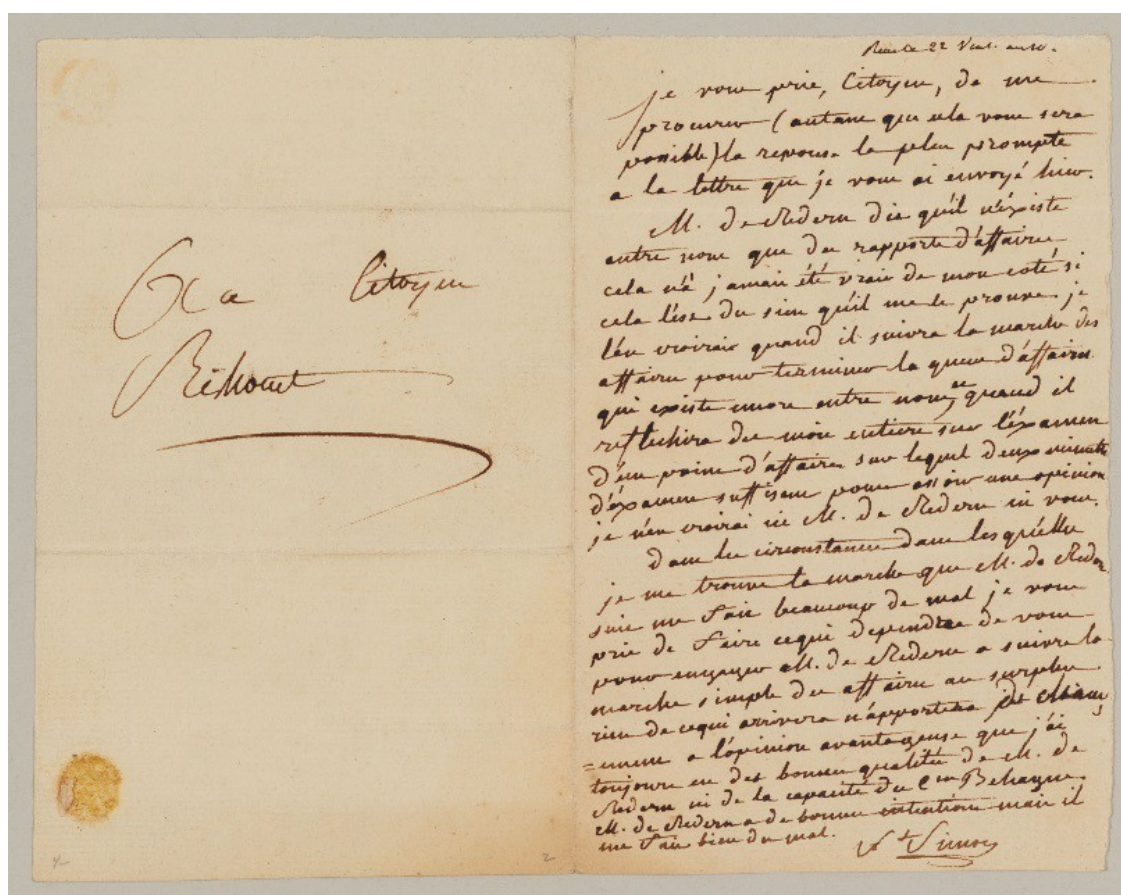 Au Citoyen
22 an 10.
je vous prie, Citoyen, de me
procurer (autant que cela vous sera
possible) la reponse la plus prompte
a la lettre que je vous ai envoyé hier.
M. de Redern dit qu'il n'éxiste
entre nous que des rapports d'affaires
cela n'a jamais été vrai de mon coté si
cela l'est du sien qu'il me le prouve. je
l'en croirais quand il suivra la marche des
affaires pour terminer la queue d'affaires
qui existe encore entre nous, et quand il
reflechira des mois entiers sur l'éxamen
d'un point d'affaires sur lequel deux minutes
d'éxamen suffisent pour assoir une opinion
je n'en croirai ni M. de Redern ni vous.
dans les circonstances dans les qu'elles
je me trouve la marche que M. de Redern
suit me fait beaucoup de mal je vous
prie de faire ce qui dependra de vous
pour engager M. de Redern a suivre la
marche simple des affaires au surplus
rien de ce qui arrivera n'apportera de chang
=ement a l'opinion avantageuse que j'ai
toujours eu des bonnes qualités de M. de
Redern ni de la capacité du Cen Behague.
M. de Redern a de bonnes intentions mais il
me fait bien du mal.
St Simon